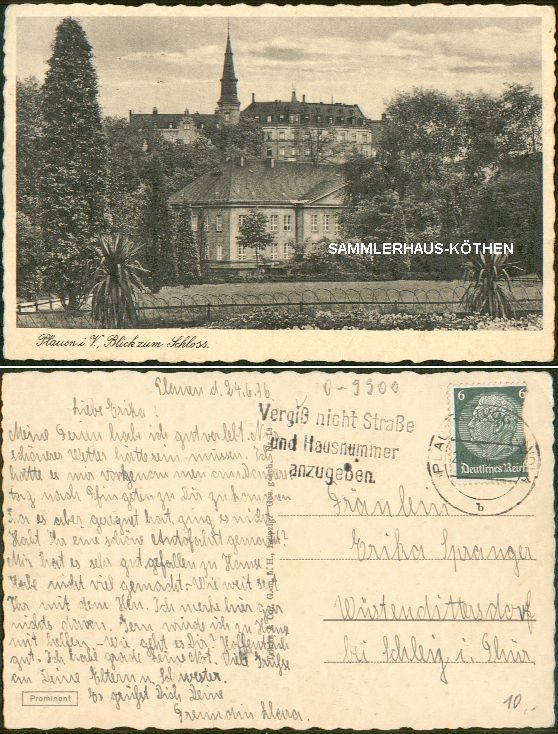 SAMMLERHAUS-KÖTHEN
Plauen i. V., Blick zum Schloss.
Plauen d. 24.6.36
0-9900
Liebe Erika!
Vergiß nicht Straße
und Hausnummer
anzugeben.
6 6
Deutsches Reich
b
Meine Ferien habe ich gut verlebt. Nur
schöneres Wetter hätte sein müssen. Ich
hatte es mir vorgenommen am Donners
tag nach Pfingsten zu Dir zu kommen
Da es aber geregnet hat, ging es nicht
Habt Ihr eine schöne Autofahrt gemacht?
Mir hat es sehr gut gefallen zu Hause
Habe nicht viel gemacht. Wie weit seid
Ihr mit dem Heu. Ich merke hier gar
nichts davon. Gern würde ich zu Hause
mit helfen. - Wie geht es Dir? Hoffentlich
gut. Ich habe grade keine Not. Viele Grüße
an Deine Eltern u. Schwester.
Es grüßt Dich Deine
Freundin
Fräulein
Erika Spranger
bei Schleiz i. Thür
Prominent
10,-